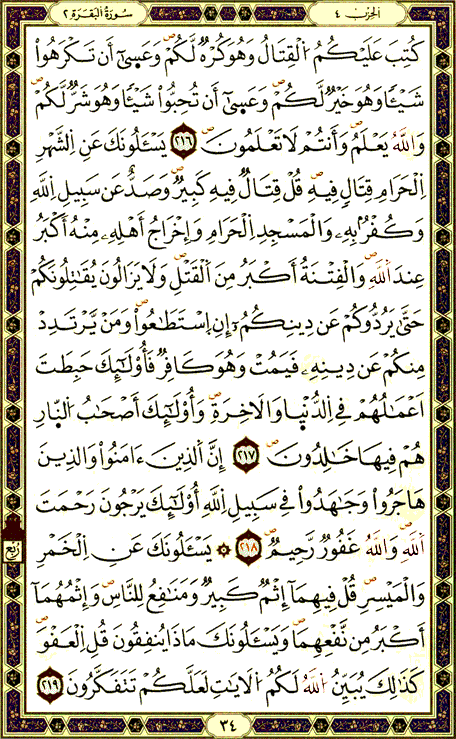 الحزب ٤
سورة البقرة ٢
كُتِبَ عَلَيْكُمُ الْقِتَالُ وَهُوَ كُرْهٌ لَّكُمْ وَعَسَىٰٓ أَن تَكْرَهُوا۟
شَيْـًٔا وَهُوَ خَيْرٌ لَّكُمْ وَعَسَىٰٓ أَن تُحِبُّوا۟ شَيْـًٔا وَهُوَ شَرٌّ لَّكُمْ
وَاللَّهُ يَعْلَمُ وَأَنتُمْ لَا تَعْلَمُونَ ٢١٦ يَسْـَٔلُونَكَ عَنِ الشَّهْرِ
الْحَرَامِ قِتَالٍ فِيهِ قُلْ قِتَالٌ فِيهِ كَبِيرٌ وَصَدٌّ عَن سَبِيلِ اللَّهِ
وَكُفْرٌۢ بِهِۦ وَالْمَسْجِدِ الْحَرَامِ وَإِخْرَاجُ أَهْلِهِۦ مِنْهُ أَكْبَرُ
عِندَ اللَّهِ وَالْفِتْنَةُ أَكْبَرُ مِنَ الْقَتْلِ وَلَا يَزَالُونَ يُقَـٰتِلُونَكُمْ
حَتَّىٰ يَرُدُّوكُمْ عَن دِينِكُمُۥٓ إِنِ اسْتَطَـٰعُوا۟ وَمَنْ يَّرْتَدِدْ
مِنكُمْ عَن دِينِهِۦ فَيَمُتْ وَهُوَ كَافِرٌ فَأُو۟لَـٰٓئِكَ حَبِطَتَ
اعْمَـٰلُهُمْ فِے الدُّنْيَا وَالَاخِرَةِ وَأُو۟لَـٰٓئِكَ أَصْحَـٰبُ النَّارِ
هُمْ فِيهَا خَـٰلِدُونَ ٢١٧ إِنَّ الَّذِينَ ءَامَنُوا۟ وَالَّذِينَ
هَاجَرُوا۟ وَجَـٰهَدُوا۟ فِے سَبِيلِ اللَّهِ أُو۟لَـٰٓئِكَ يَرْجُونَ رَحْمَتَ
اللَّهِ وَاللَّهُ غَفُورٌ رَّحِيمٌ ٢١٨ ۞ يَسْـَٔلُونَكَ عَنِ الْخَمْرِ
وَالْمَيْسِرِ قُلْ فِيهِمَآ إِثْمٌ كَبِيرٌ وَمَنَـٰفِعُ لِلنَّاسِ وَإِثْمُهُمَآ
أَكْبَرُ مِن نَّفْعِهِمَا وَيَسْـَٔلُونَكَ مَاذَا يُنفِقُونَ قُلِ الْعَفْوَ
كَذَٰلِكَ يُبَيِّنُ اللَّهُ لَكُمُ الَايَـٰتِ لَعَلَّكُمْ تَتَفَكَّرُونَ ٢١٩
ربع
٣٤